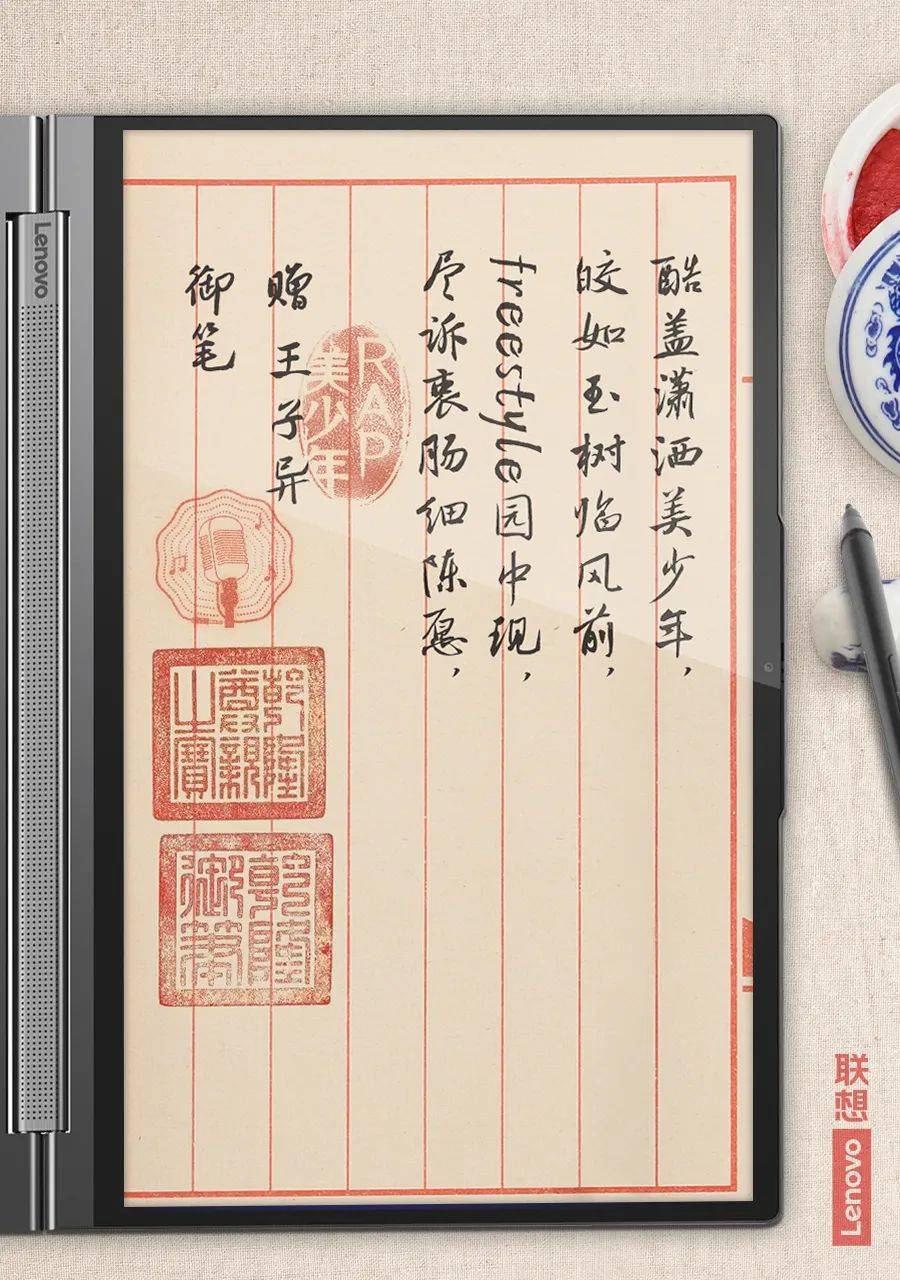 酷盖潇洒美少年，
皎如玉树临风前，
freestyle园中现，
尽诉衷肠细陈愿，
赠 王子异
御笔
RAP
美少年
乾隆
之寶
乾隆
御筆
Lenovo
联想
Lenovo